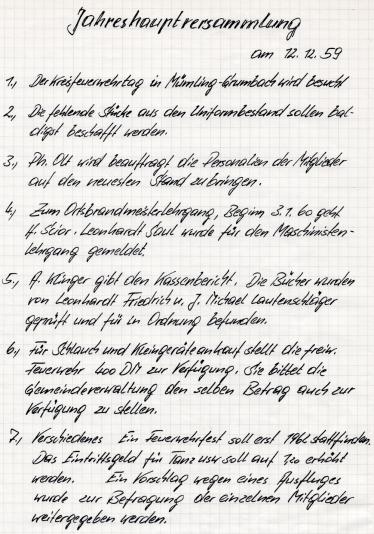 Jahreshauptversammlung
am 12.12.59
1., Der Kreisfeuerwehrtag in Mümling-Grumbach wird besucht
2., Die fehlende Stücke aus den Uniformbestand sollen bal-
digst beschafft werden.
3., Ph. Olt wird beauftragt die Personalien der Mitglieder
auf den neuesten Stand zu bringen.
4., Zum Ortsbrandmeisterlehrgang, Beginn 3.1.60 geht
H. Stior. Leonhardt Saul wurde für den Maschinisten-
lehrgang gemeldet.
5., A. Klinger gibt den Kassenbericht. Die Bücher wurden
von Leonhardt Friedrich u. J. Michael Lautenschläger
geprüft und für in Ordnung befunden.
6., Für Schlauch und Kleingeräteankauf stellt die freiw.
Feuerwehr 400 DM zur Verfügung. Sie bittet die
Gemeindeverwaltung den selben Betrag auch zur
Verfügung zu stellen.
7., Verschiedenes Ein Feuerwehrfest soll erst 1962 stattfinden.
Das Eintrittsgeld für Tanz usw soll auf 1,20 erhöht
werden. Ein Vorschlag wegen eines Ausfluges
wurde zur Befragung der einzelnen Mitglieder
weitergegeben werden.